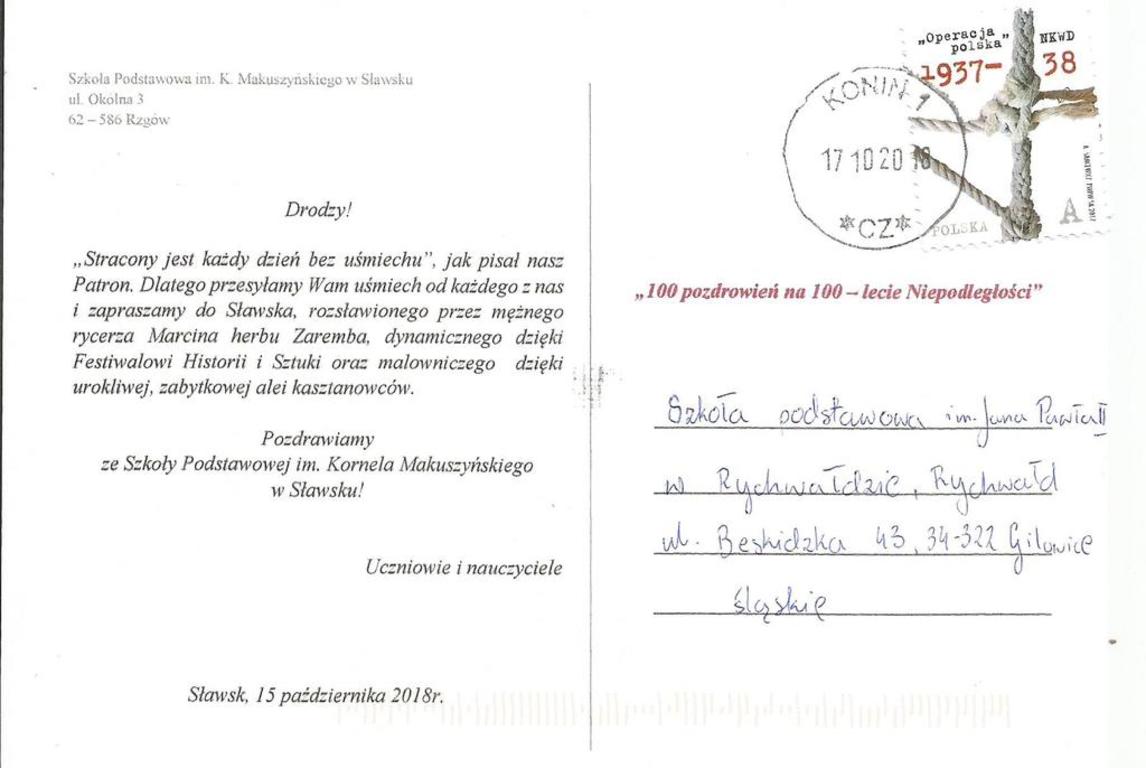 Szkoła Podstawowa im. K. Makuszyńskiego w Sławsku
ul. Okólna 3
62 – 586 Rzgów
Drodzy!
„Stracony jest każdy dzień bez uśmiechu”, jak pisał nasz
Patron. Dlatego przesyłamy Wam uśmiech od każdego z nas
i zapraszamy do Sławska, rozsławionego przez mężnego
rycerza Marcina herbu Zaremba, dynamicznego dzięki
Festiwalowi Historii i Sztuki oraz malowniczego dzięki
urokliwej, zabytkowej alei kasztanowców.
Pozdrawiamy
ze Szkoły Podstawowej im. Kornela Makuszyńskiego
w Sławsku!
Uczniowie i nauczyciele
Sławsk, 15 października 2018r.
„Operacja polska” NKWD
1937–38
POLSKA A
KONIN 1
17 10 20 18
*CZ*
„100 pozdrowień na 100 – lecie Niepodległości”
Szkoła podstawowa im. Jana Pawła II
w Rychwałdzie, Rychwałd
ul. Beskidzka 43, 34-322 Gilowice
śląskie